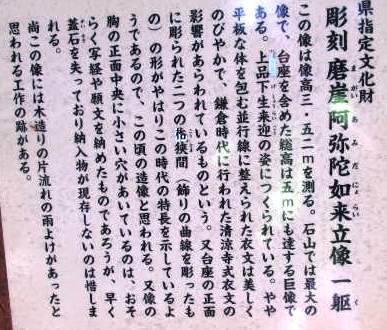 県指定文化財
彫刻 磨崖阿弥陀如来立像 一躯
まがいあみだにょらい く
この像は像高三・五二mを測る。石山では最大の
像で、台座を含めた総高は五mにも達する巨像で
ある。上品下生来迎の姿につくられている。やや
平板な体を包む並行線に整えられた衣文は美しく
のびやかで、鎌倉時代に行われた清涼寺式衣文の
影響があらわれているものという。又台座の正面
に彫られた二つの格狭間（飾りの曲線を彫ったも
の）の形がやはりこの時代の特長を示しているよ
うであるので、この頃の造像と思われる。又像の
胸の正面中央に小さい穴があいているのは、おそ
らく写経や願文を納めたものであろうが、早く
蓋石を失っており納入物が現存しないのは惜しま
れる。
尚この像には木造りの片流れの雨よけがあったと
思われる工作の跡がある。